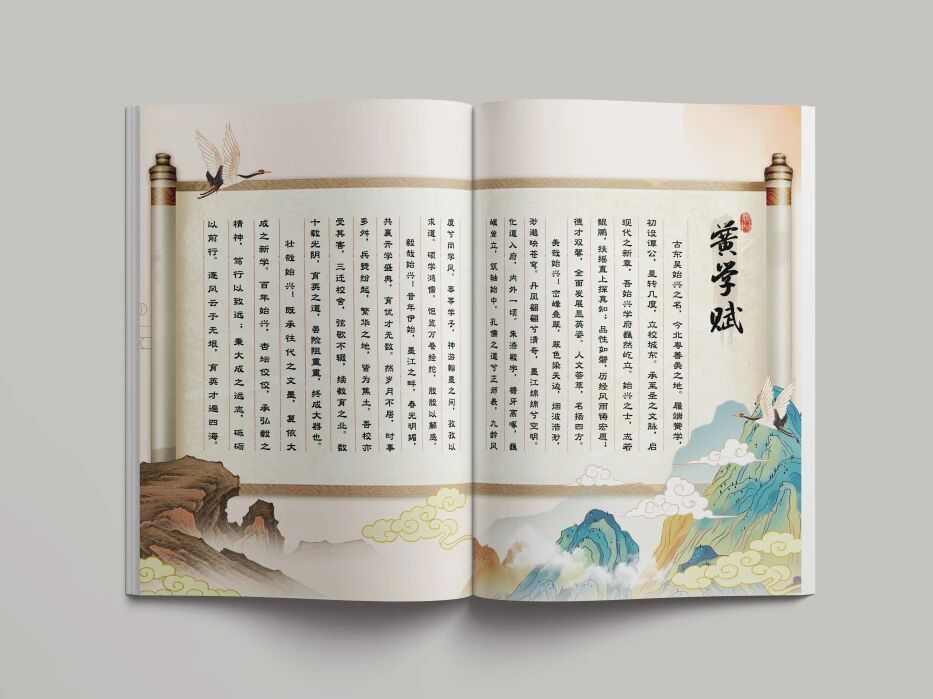 黉学赋
古东吴始兴之名,今北粤善美之地。履端黉学,
初设谭公,星转几度,立校城东。承至圣之文脉,启
现代之新章,吾始兴学府巍然屹立。始兴之士,志若
鲲鹏,扶摇直上探真知;品性如磐,历经风雨铸宏愿;
德才双馨,全面发展显英姿。人文荟萃,名扬四方。
美哉始兴!峦峰叠翠,翠色染天边,烟波浩渺
渺邈映苍穹。丹凤翩翩兮清奇,墨江绵绵兮空明。
化道入府,内外一顷。朱漆殿宇,檐牙高啄,巍
峨耸立,筑轴始中。孔儒之道兮正师表,九龄风
度兮尚学风。莘莘学子,神游翰墨之间,孜孜以
求道。硕学鸿儒,饱览万卷经纶,殷殷以解惑。
毅哉始兴!昔年伊始,墨江之畔,春光明媚,
共襄开学盛典,育优才无数。然岁月不居,时事
多舛,兵燹纷起,繁华之地,皆为焦土。吾校亦
受其害,三迁校舍,弦歌不辍,续教育之业。数
十载光阴,育英之道,虽险阻重重,终成大器也。
壮哉始兴!既承往代之文墨,复依大
成之新学。百年始兴,杏坛佼佼,承弘毅之
精神,笃行以致远;秉大成之远志,砥砺
以前行。逐风云于无垠,育英才遍四海。